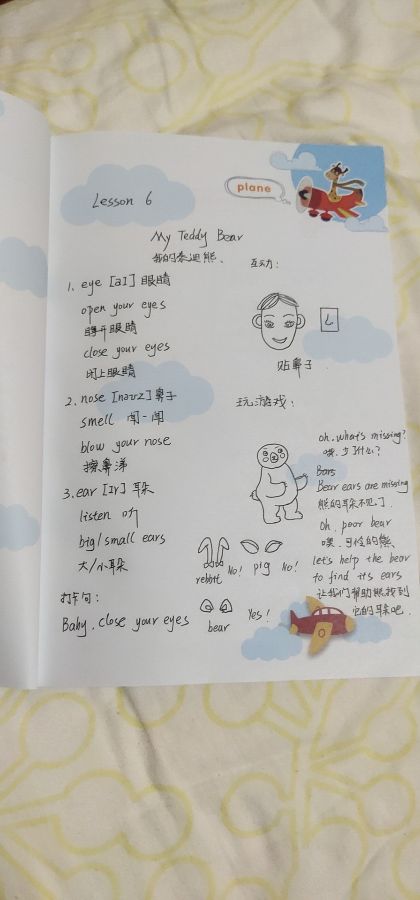 plane
Lesson 6
My Teddy Bear
我的泰迪熊、
1. eye [aI] 眼睛
open your eyes
睁开眼睛
close your eyes
闭上眼睛
2. nose [nəʊz] 鼻子
smell 闻一闻
blow your nose
擦鼻涕
3. ear [Ir] 耳朵
listen 听
big/small ears
大/小耳朵
打卡句:
Baby, close your eyes
互动:
贴鼻子
玩游戏:
oh, what's missing?
噢,少了什么?
Bars
Bear ears are missing
熊的耳朵不见了.
Oh, poor bear
噢,可怜的熊
let's help the bear
to find its ears
让我们帮助熊找到
它的耳朵吧.
rabbit No! pig No!
bear Yes!